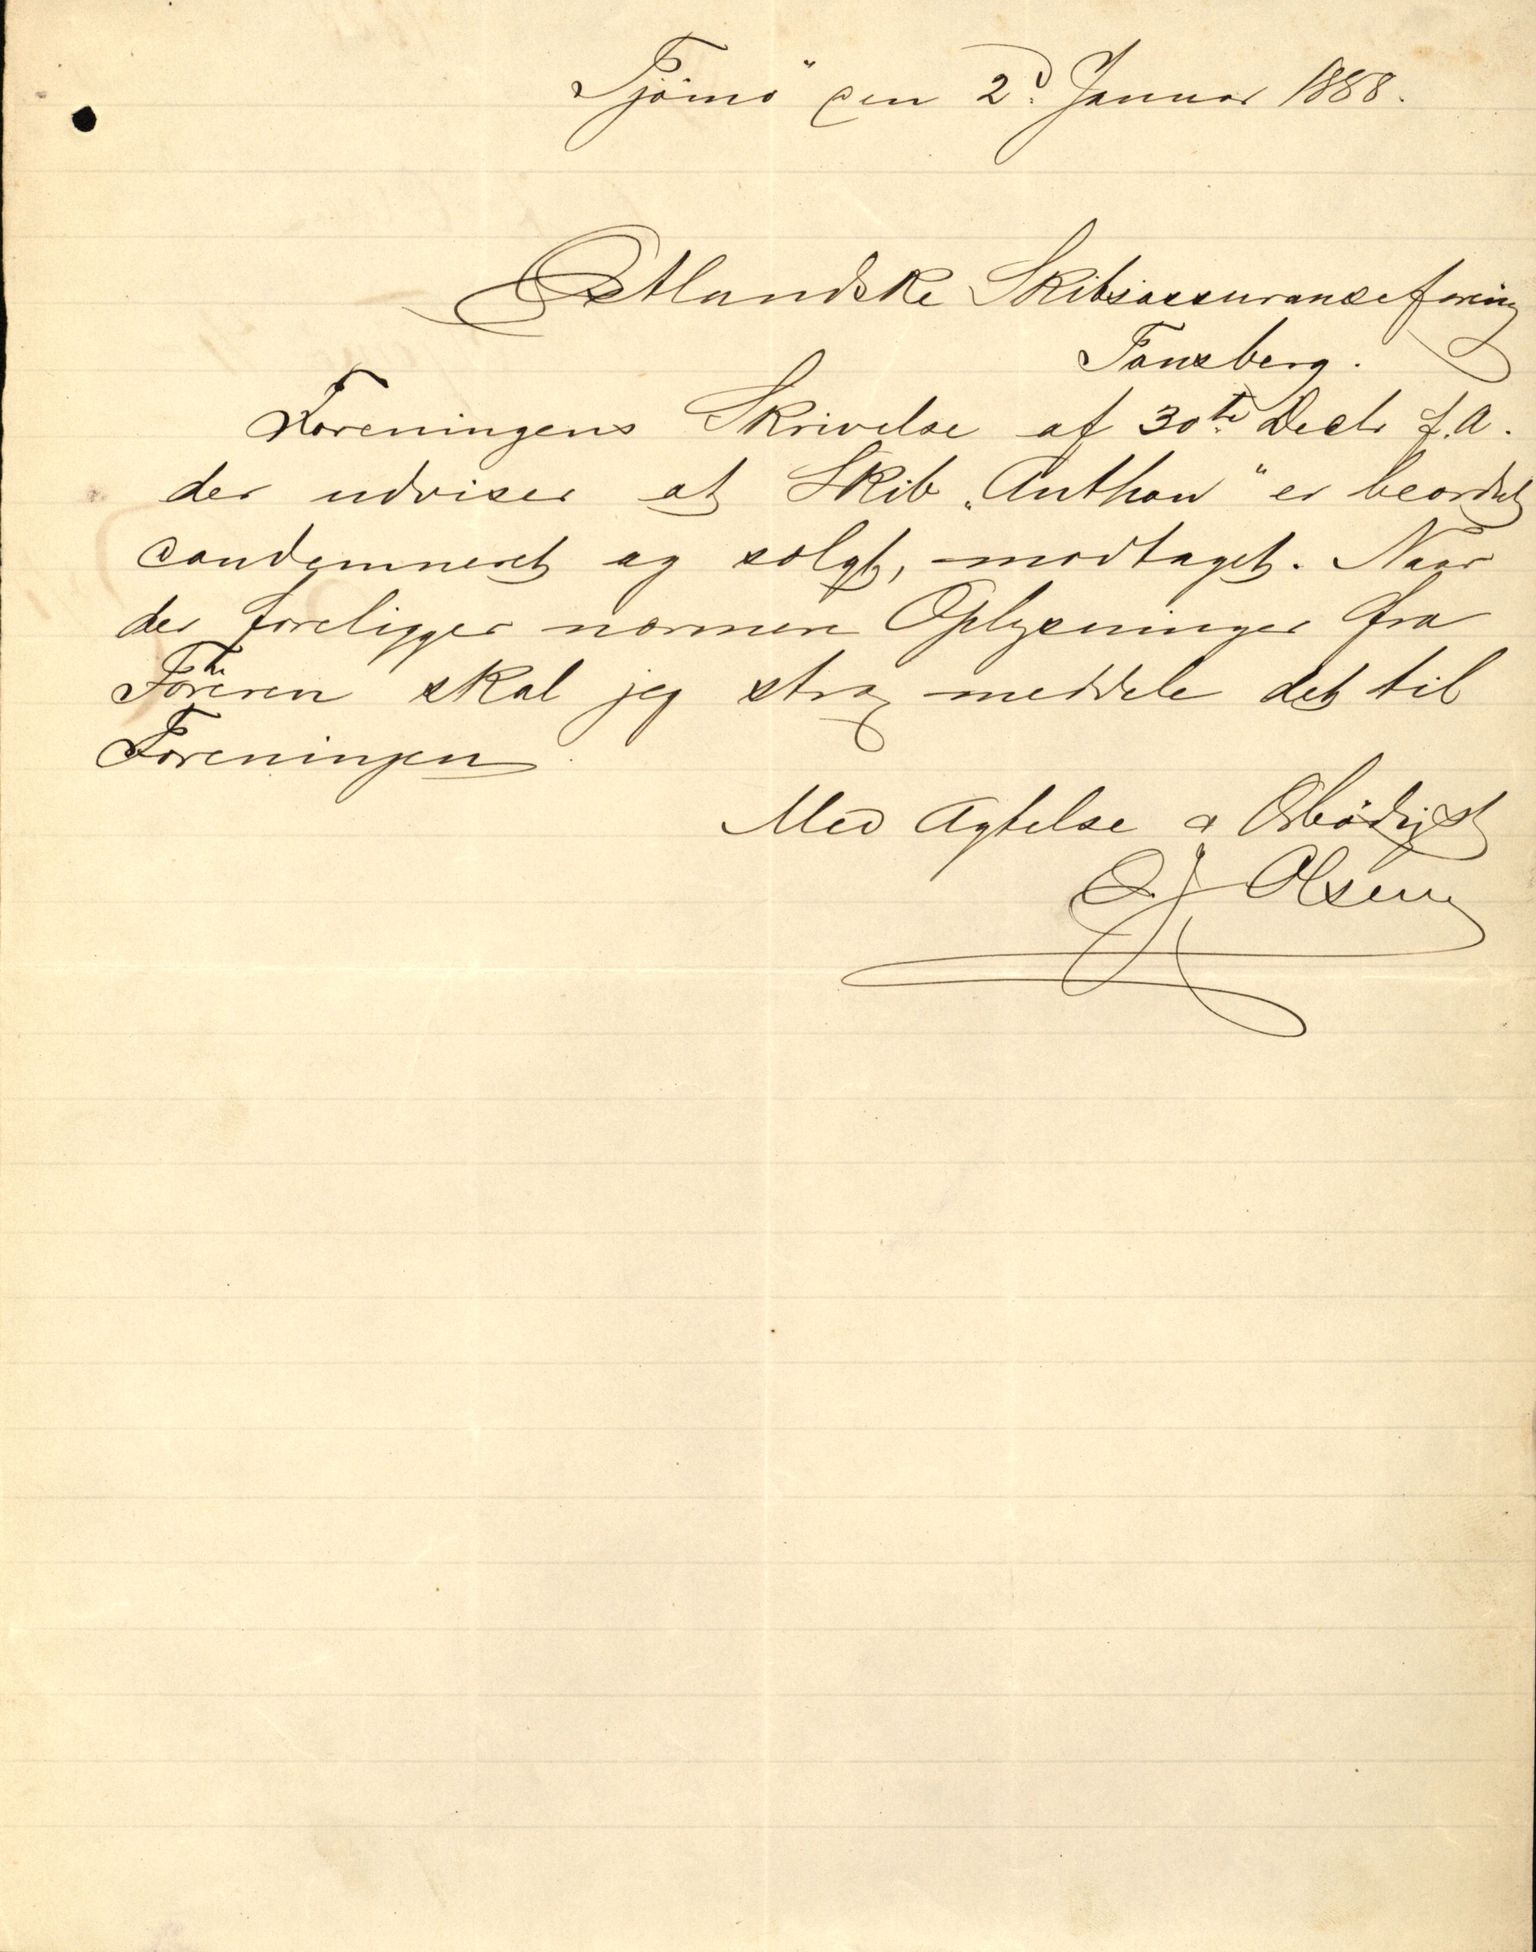 Tjömö den 2d. Januar 1888.
Østlandske Skibsassuranceforening
Tønsberg.
Foreningens Skrivelse af 30te Decbr f.A.
der udviser at Skib „Anthon" er beordret
condemneret og solgt, modtaget. Naar
der foreligger nærmere Oplysninger fra
Føreren skal jeg strax meddele det til
Foreningen.
Med Agtelse & Ærbödigst
O. J. Olsen